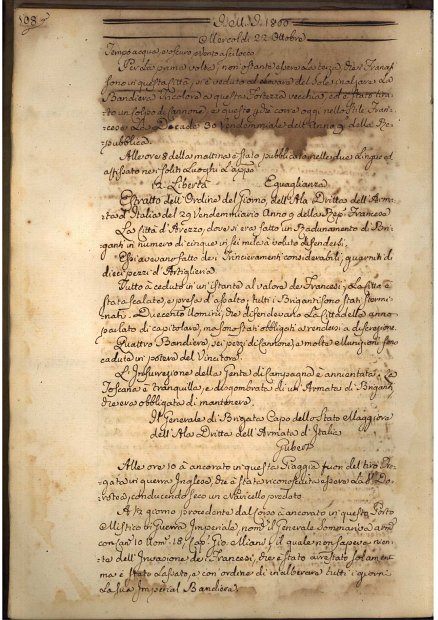 198
Dell'A. 1800
Mercoldì 22 Ottobre
Tempo acqua, e oscuro vento a scilocco
Per la prima volta, non ostante essere la terza, che i Francesi
sono in questa Città, si è veduto al levare del Sole inalzare La
Bandiera Tricolora a questa Fortezza vecchia, ed è stato tirato
un colpo di Cannone, e questo giorno corre oggi nello Stile Francese
La Decade 30 Vendemmiale dell'Anno 9 della Repubblica.
Alle ore 8 della mattina è stato pubblicato nelle due Lingue ed
affissato nei soliti Luoghi L'app.
Libertà Eguaglianza
Estratto dell'Ordine del Giorno, dell'Ala Dritta dell'Armata
d'Italia del 29 Vendemmiario Anno 9 della Rep. Francese
La Città d'Arezzo, dove si era fatto un Radunamento di Briganti
in numero di cinque in sei mila à voluto defendersi,
Essi avevano fatto dei Trincieramenti considerabili, guarniti di
dieci pezzi d'Artiglieria
Tutto à ceduto in un'istante al valore dei Francesi; La Città è
stata scalata, e presa d'assalto; tutti i Briganti sono stati stermi-
nati. Duecento Uomini, che difendevano La Cittadella anno
parlato di capitolare, ma sono stati obbligati a rendersi a discrezione.
Quattro Bandiere, sei pezzi di Cannone, e molte Munizioni sono
cadute in potere del Vincitore.
L'Insurrezione della Gente di Campagna è annientata, La
Toscana è tranquilla, e disgombrata di un Armata di Briganti,
che era obbligata di mantenere.
Il Generale di Brigata Capo dello Stato Maggiore
dell'Ala Dritta dell'Armata d'Italia
Gubert
Alle ore 10 à ancorato in questa Piaggia fuori del tiro Fre-
gata in guerra Inglese, che è stata riconosciuta essere La
conducendo seco un Navicello predato
A giorno procedente dal corso à ancorato in questo Porto
Mistico di Guerra Imperiale, nom. il Generale Sommariva arm.
con can. 10 Uom. 18, Cap. Gio. Miani, il quale non sapeva nien-
te dell'Invasione dei Francesi, che è stato arrestato solamente
ma è stato Lasciato, e con ordine di inalberare tutti i giorni
La sua Imperial Bandiera.